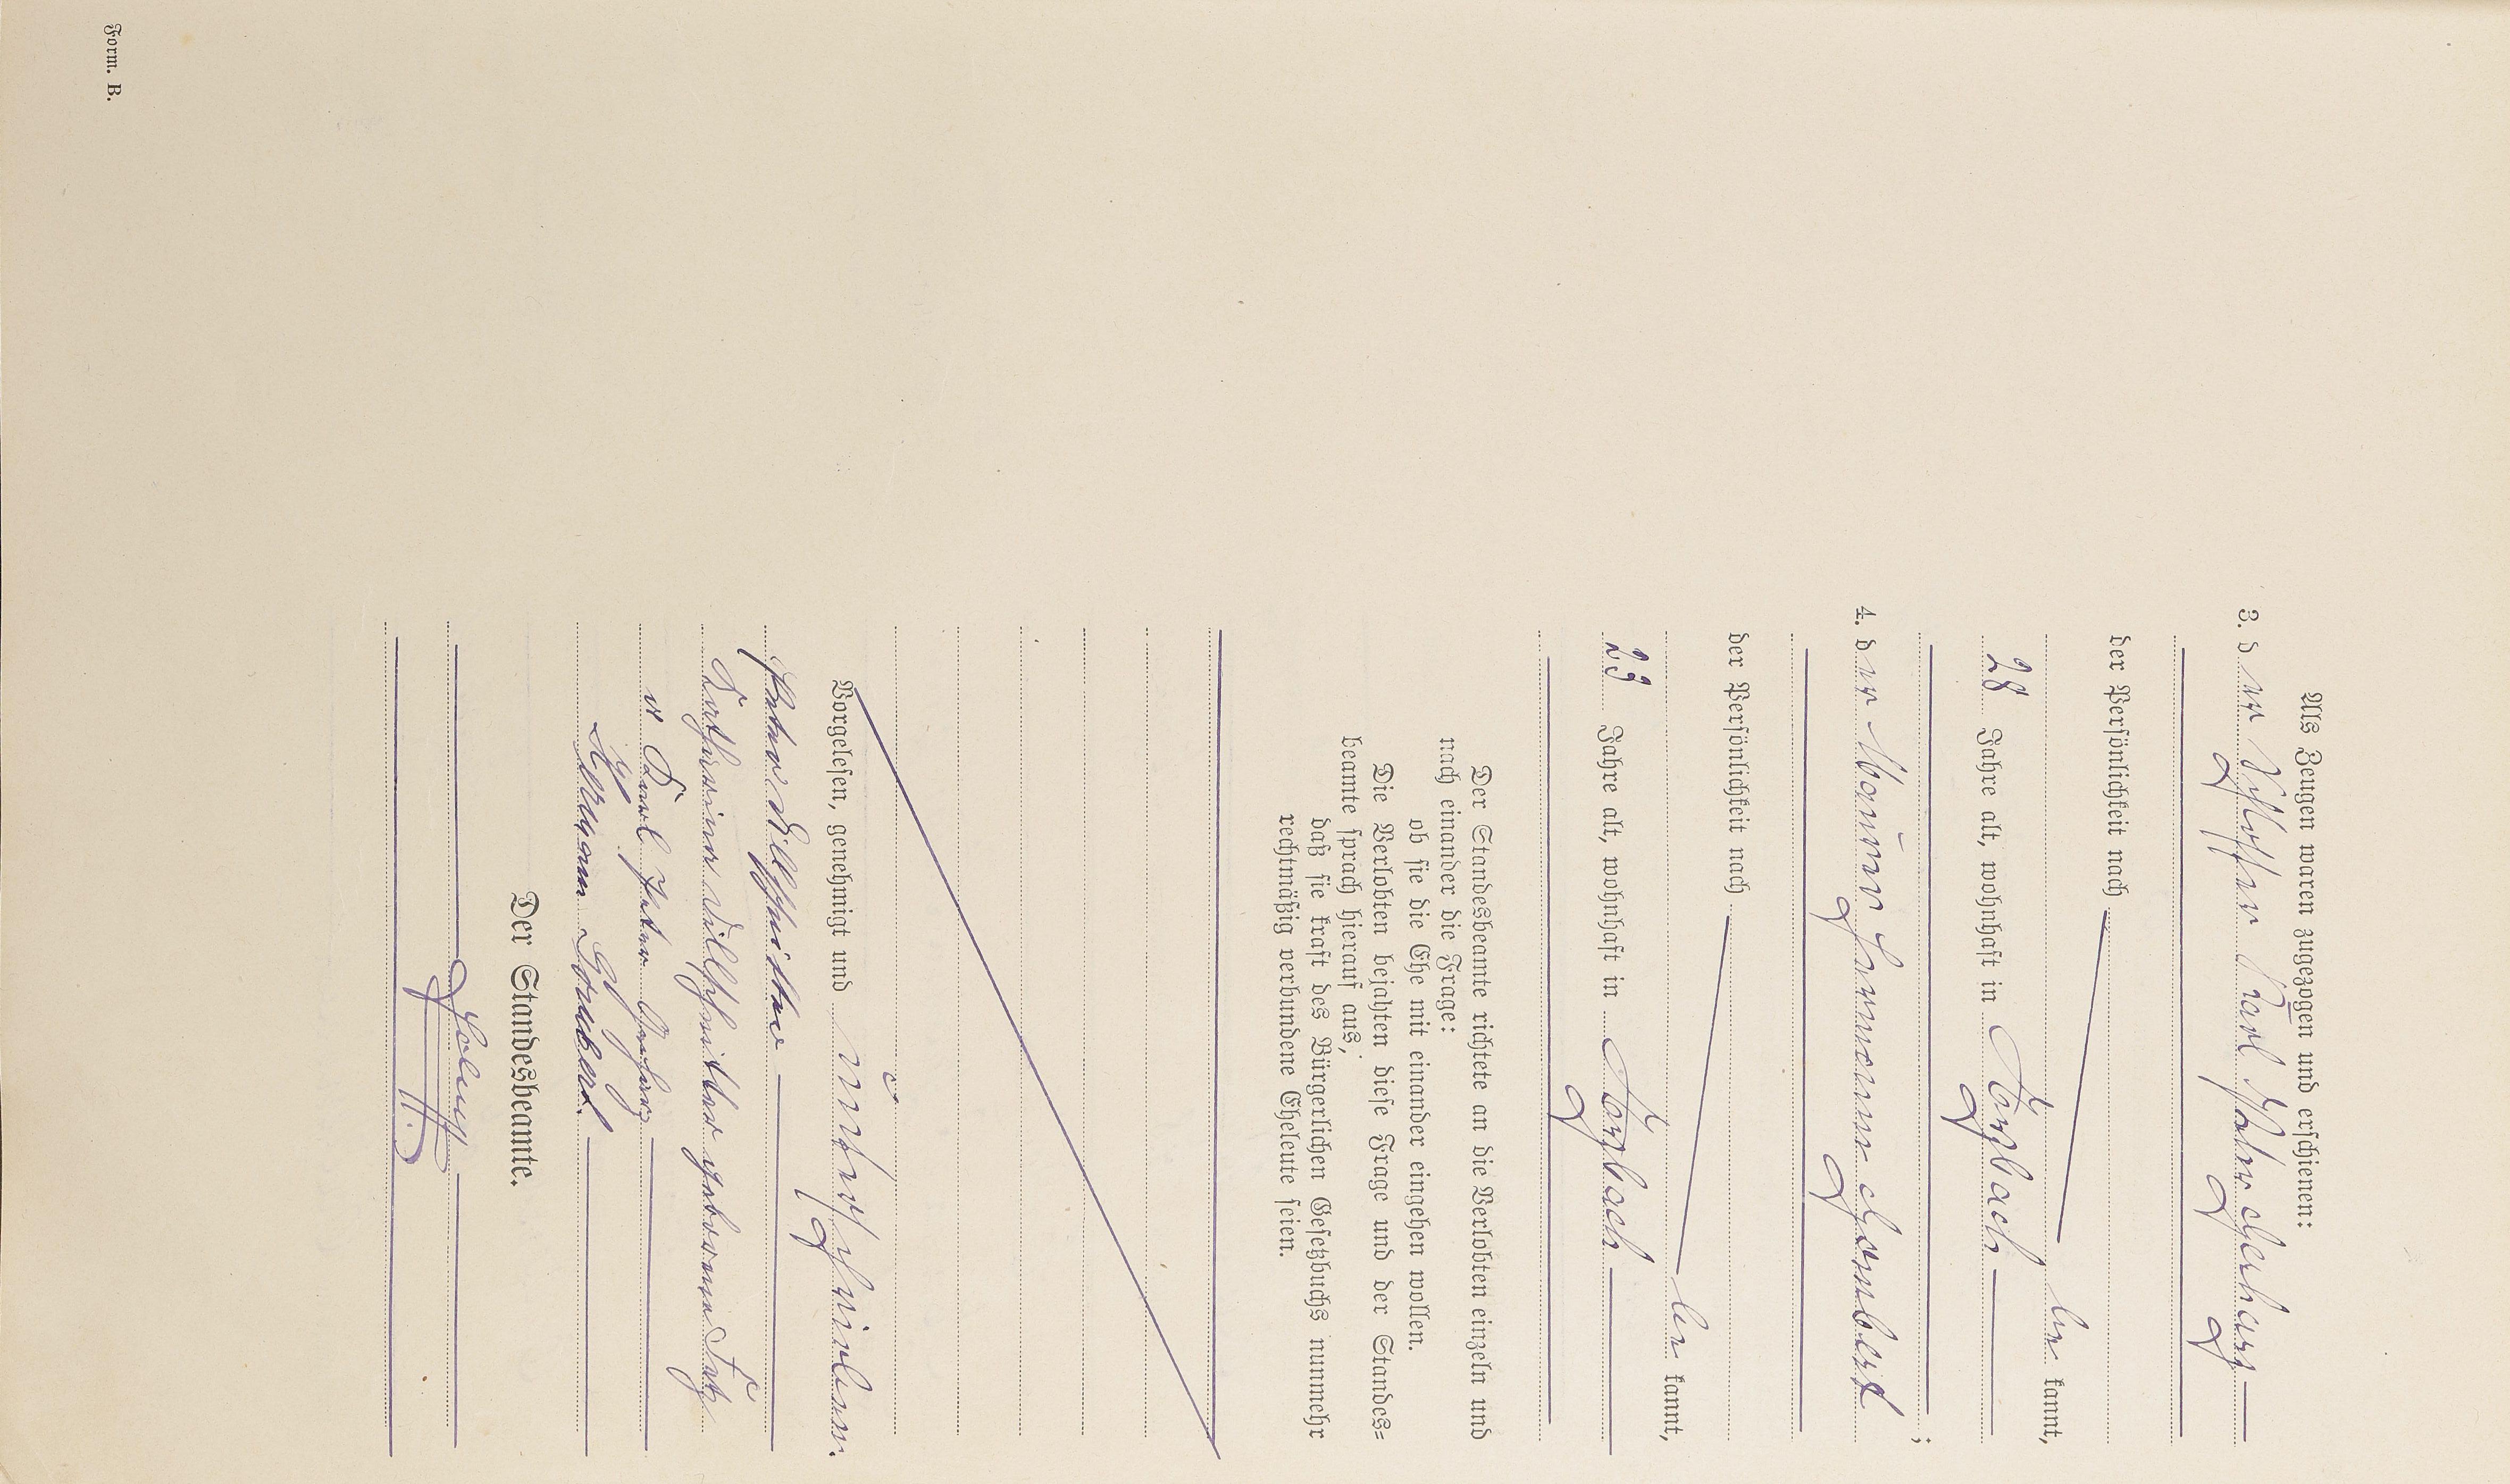 Als Zeugen waren zugezogen und erschienen:
3. der Schlosser Karl Peter Gerharz
der Persönlichkeit nach
be kannt,
28 Jahre alt, wohnhaft in
4. der Maurer Hermann Gombert
;
der Persönlichkeit nach
be kannt,
23 Jahre alt, wohnhaft in
Der Standesbeamte richtete an die Verlobten einzeln und
nach einander die Frage:
ob sie die Ehe mit einander eingehen wollen.
Die Verlobten bejahten diese Frage und der Standes=
beamte sprach hierauf aus,
daß sie kraft des Bürgerlichen Gesetzbuchs nunmehr
rechtmäßig verbundene Eheleute seien.
Vorgelesen, genehmigt und unterschrieben.
Peter
geborene
Karl Peter Gerharz
Hermann Gombert
Der Standesbeamte.
Form. B.